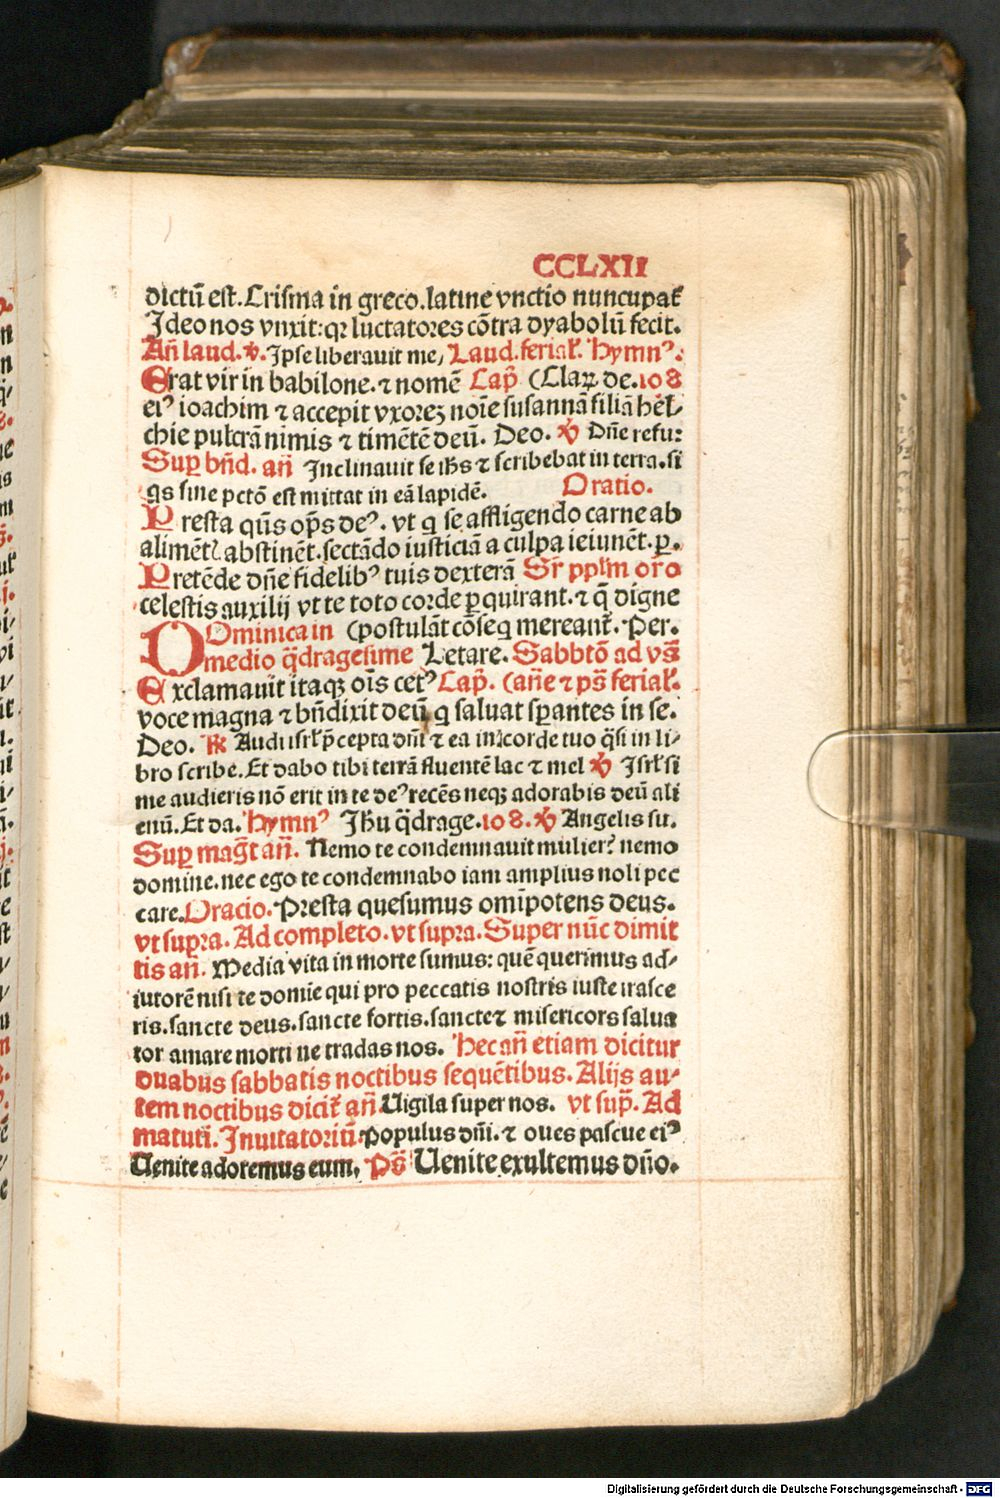 CCLXII
dictū est. Crisma in greco. latine vnctio nuncupat᷑
Ideo nos vnxit: qꝛ luctatores cōtra dyabolū fecit.
Añ laud. ꝟ. Ipse liberauit me, Laud. ferial᷑. Hymnꝰ.
Erat vir in babilone. ⁊ nomē Cap̄ (Claꝝ de. 108
eiꝰ ioachim ⁊ accepit vxoreꝫ noīe susannā filiā hel-
chie pulcrā nimis ⁊ timētē deū. Deo. ꝟ Dn̄e refu:
Suꝑ bn̄d. añ Inclinauit se ih̄s ⁊ scribebat in terra. si
qs sine pctō est mittat in eā lapidē. Oratio.
Presta qūs op̄s deꝰ. vt q se affligendo carne ab
alimēt᷑ abstinēt. sectādo iusticiā a culpa ieiunēt. ꝑ.
Pretēde dn̄e fidelibꝰ tuis dexterā Sr̄ pplm oro
celestis auxilij vt te toto corde ꝑquirant. ⁊ q̄ digne
DOminica in (postulāt cōseq mereant᷑. Per.
medio q̄dragesime Letare. Sabbtō ad vs̄
Exclamauit itaqꝫ oīs cetꝰ Cap̄. (añe ⁊ ps̄ ferial᷑.
voce magna ⁊ bn̄dixit deū q saluat sꝑantes in se.
Deo. ℟ Audi isrl᷑ p̄cepta dn̄i ⁊ ea in corde tuo q̄si in li-
bro scribe. Et dabo tibi terrā fluentē lac ⁊ mel ꝟ Isrl᷑ si
me audieris nō erit in te deꝰ recēs neqꝫ adorabis deū ali
enū. Et da. Hymnꝰ Ihū q̄drage. 108. ꝟ Angelis su.
Suꝑ mag̃t añ. Nemo te condemnauit mulier? nemo
domine. nec ego te condemnabo iam amplius noli pec
care. Oracio. Presta quesumus omīpotens deus.
vt supꝛa. Ad completo. vt supꝛa. Super nūc dimit
tis añ. Media vita in morte sumus: quē querimus ad-
iutorē nisi te domīe qui pro peccatis nostris iuste irasce
ris. sancte deus. sancte fortis. sancte ⁊ misericors salua
tor amare morti ne tradas nos. Hec añ etiam dicitur
duabus sabbatis noctibus sequētibus. Alijs au-
tem noctibus dicit᷑ añ Uigila super nos. vt suꝑ. Ad
matutī. Inuitatoriū Populus dn̄i. ⁊ oues pascue eiꝰ
Uenite adoremus eum. Ps̄ Uenite exultemus dn̄o.
Digitalisierung gefördert durch die Deutsche Forschungsgemeinschaft - DFG